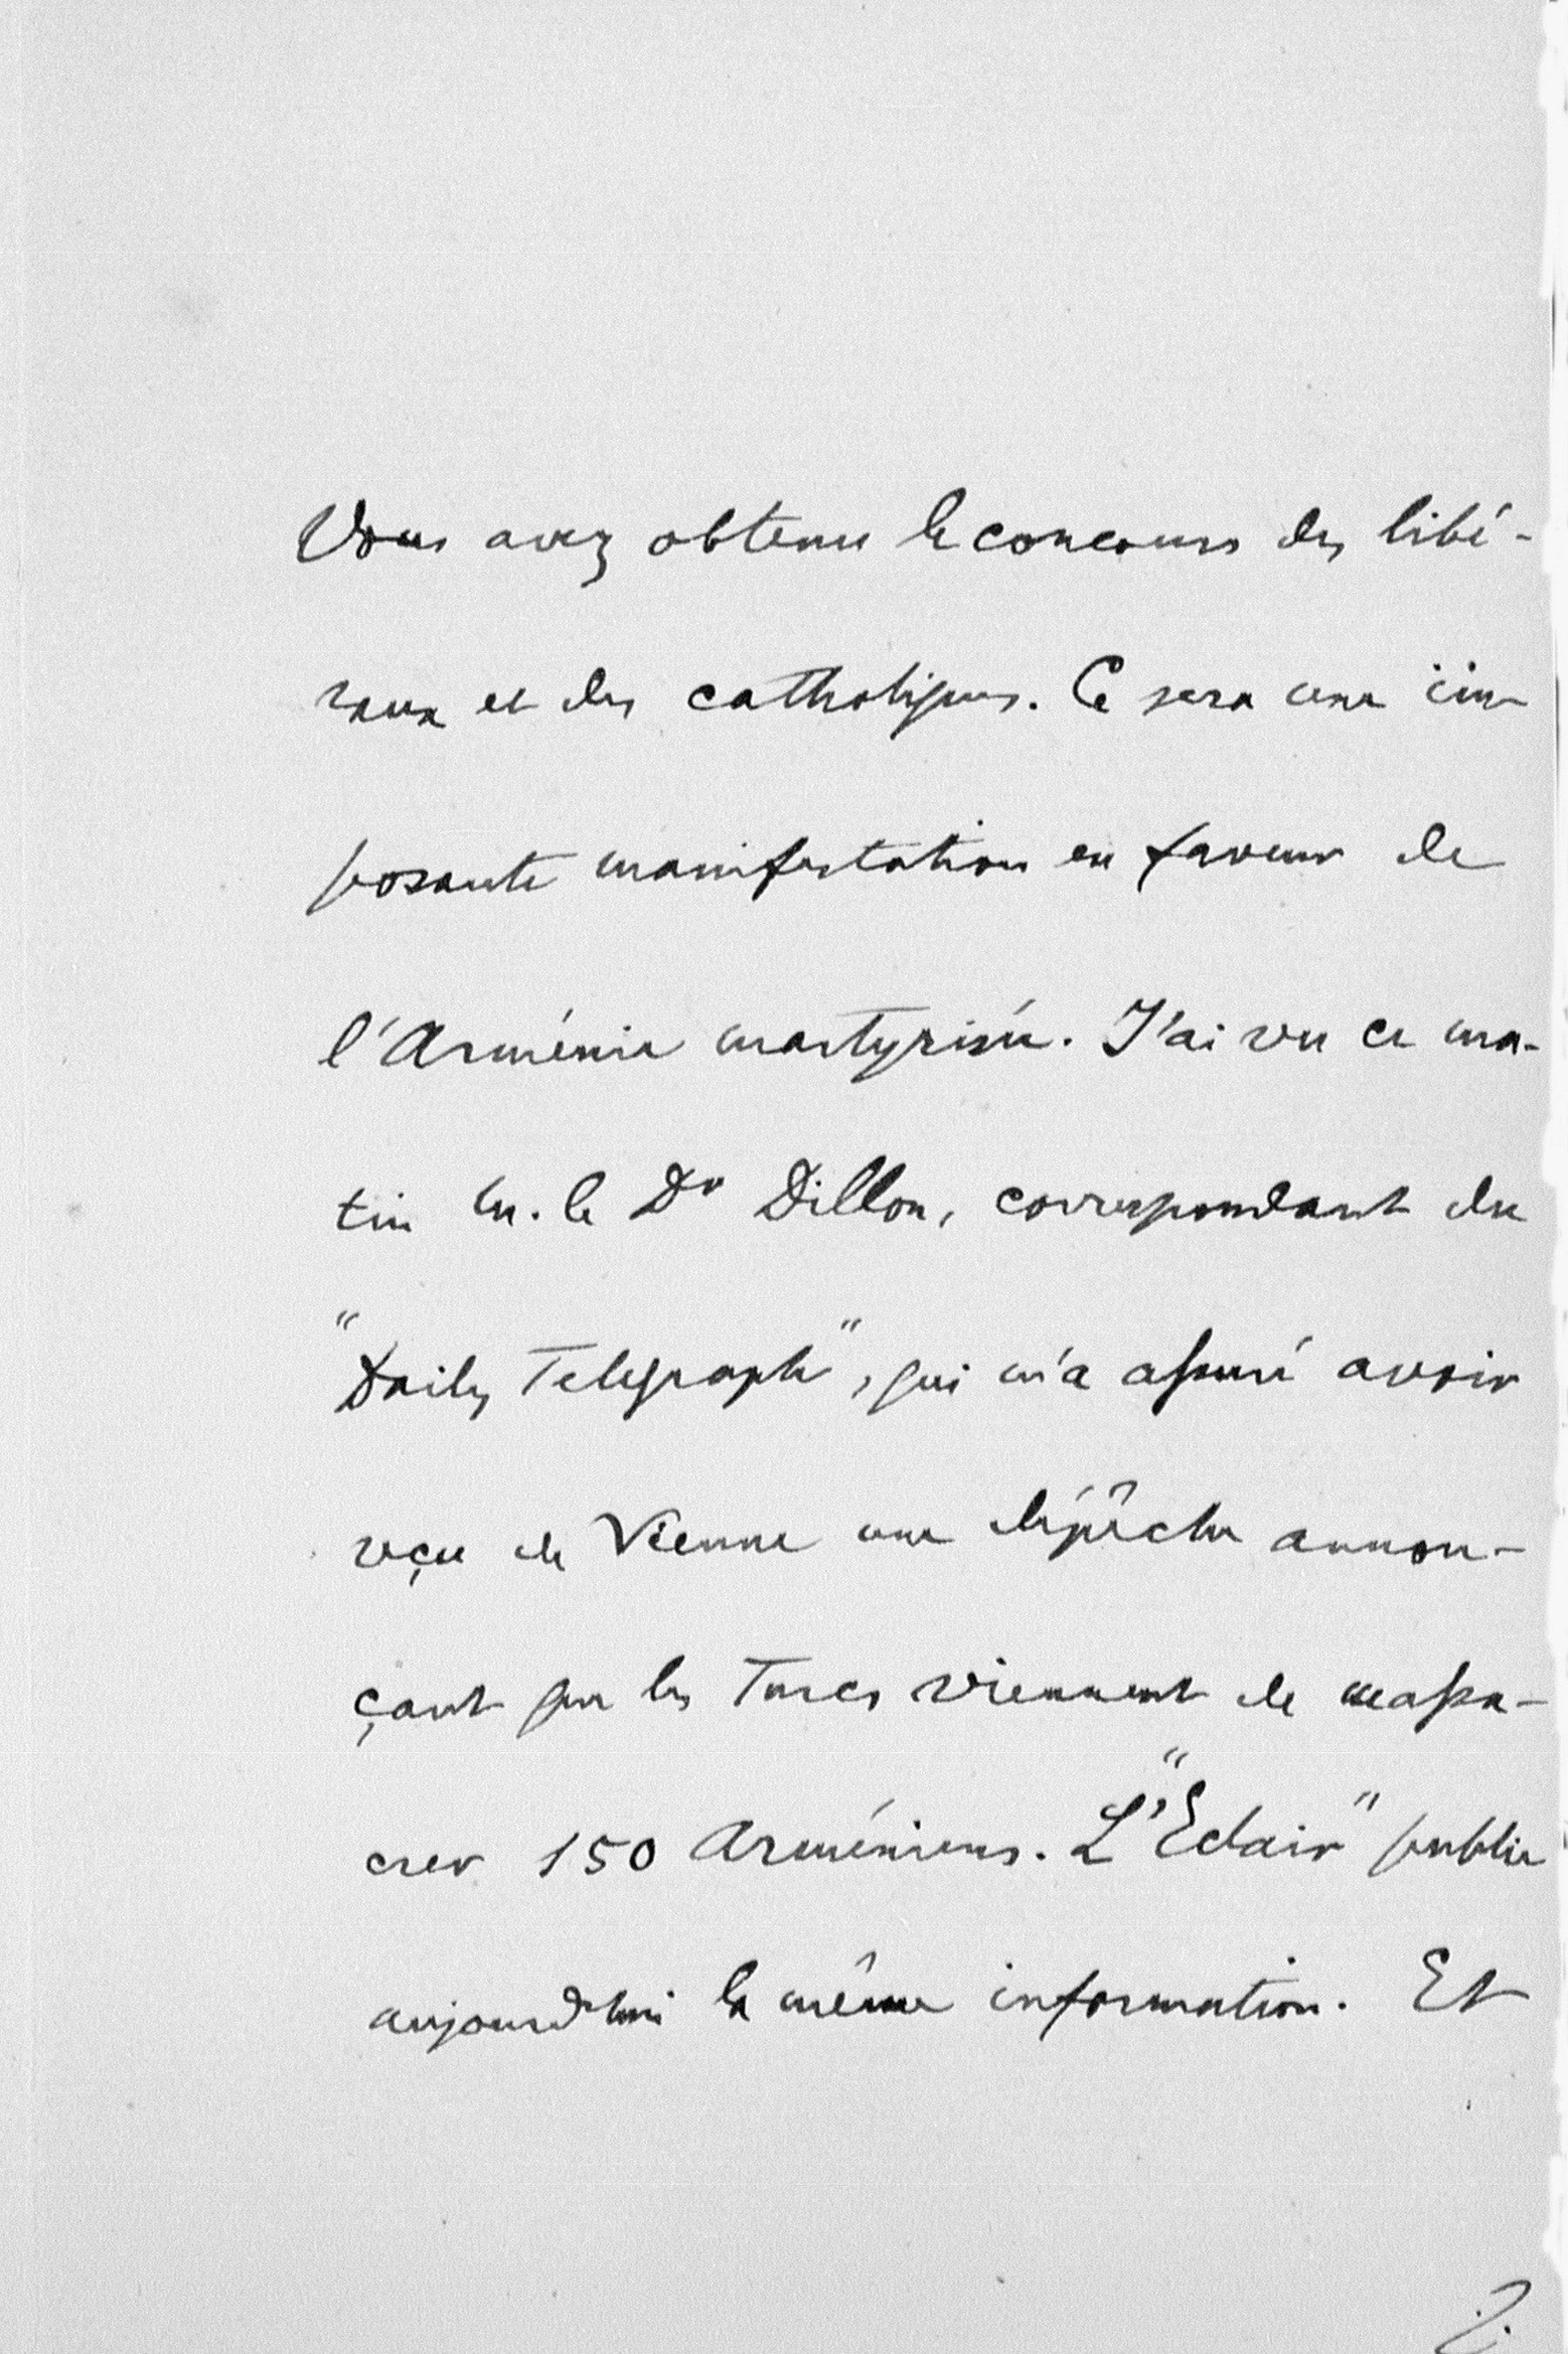 Vous avez obtenu le concours des libé-
raux et des catholiques. Ce sera une im-
posante manifestation en faveur de
l'Arménie martyrisée. J'ai vu ce ma-
tin M. le Dr Dillon, correspondant du
"Daily Telegraph", qui m'a assuré avoir
reçu de Vienne une dépêche annon-
çant que les Turcs viennent de massa-
crer 150 Arméniens. L'"Eclair" publie
aujourd'hui la même information. Et